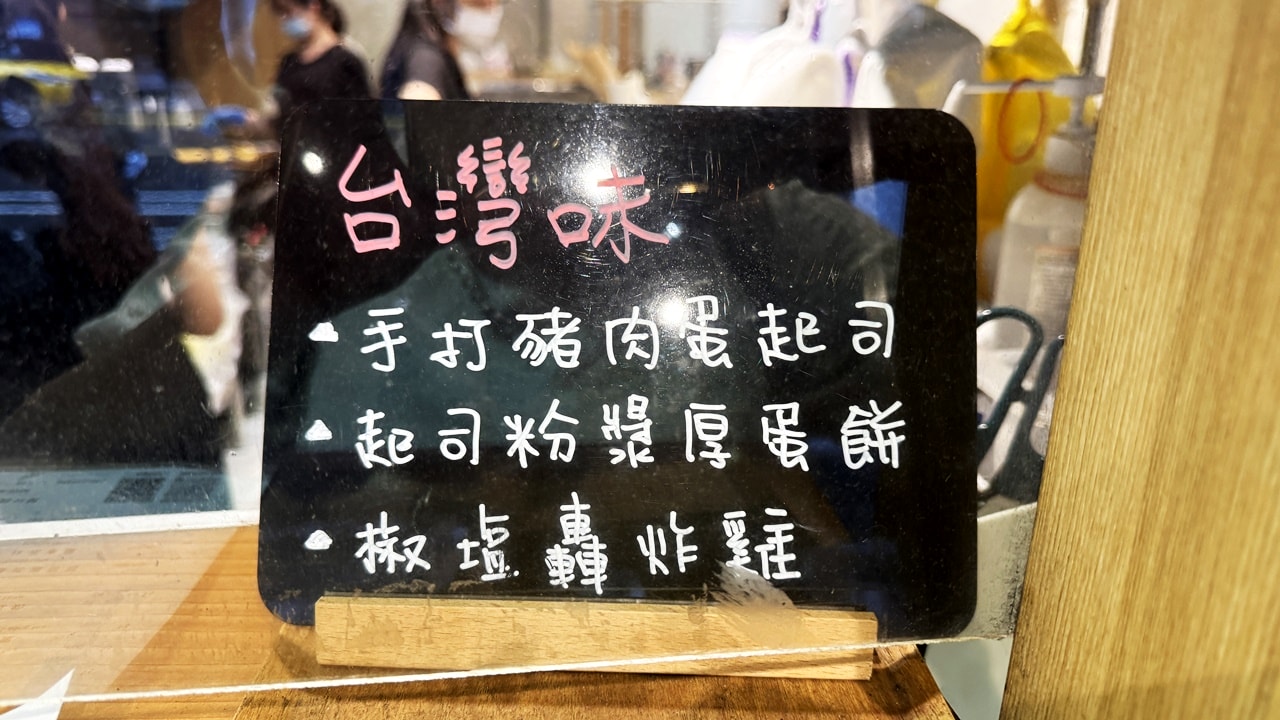 台灣味
手打豬肉蛋起司
起司粉漿厚蛋餅
椒塩轟炸雞